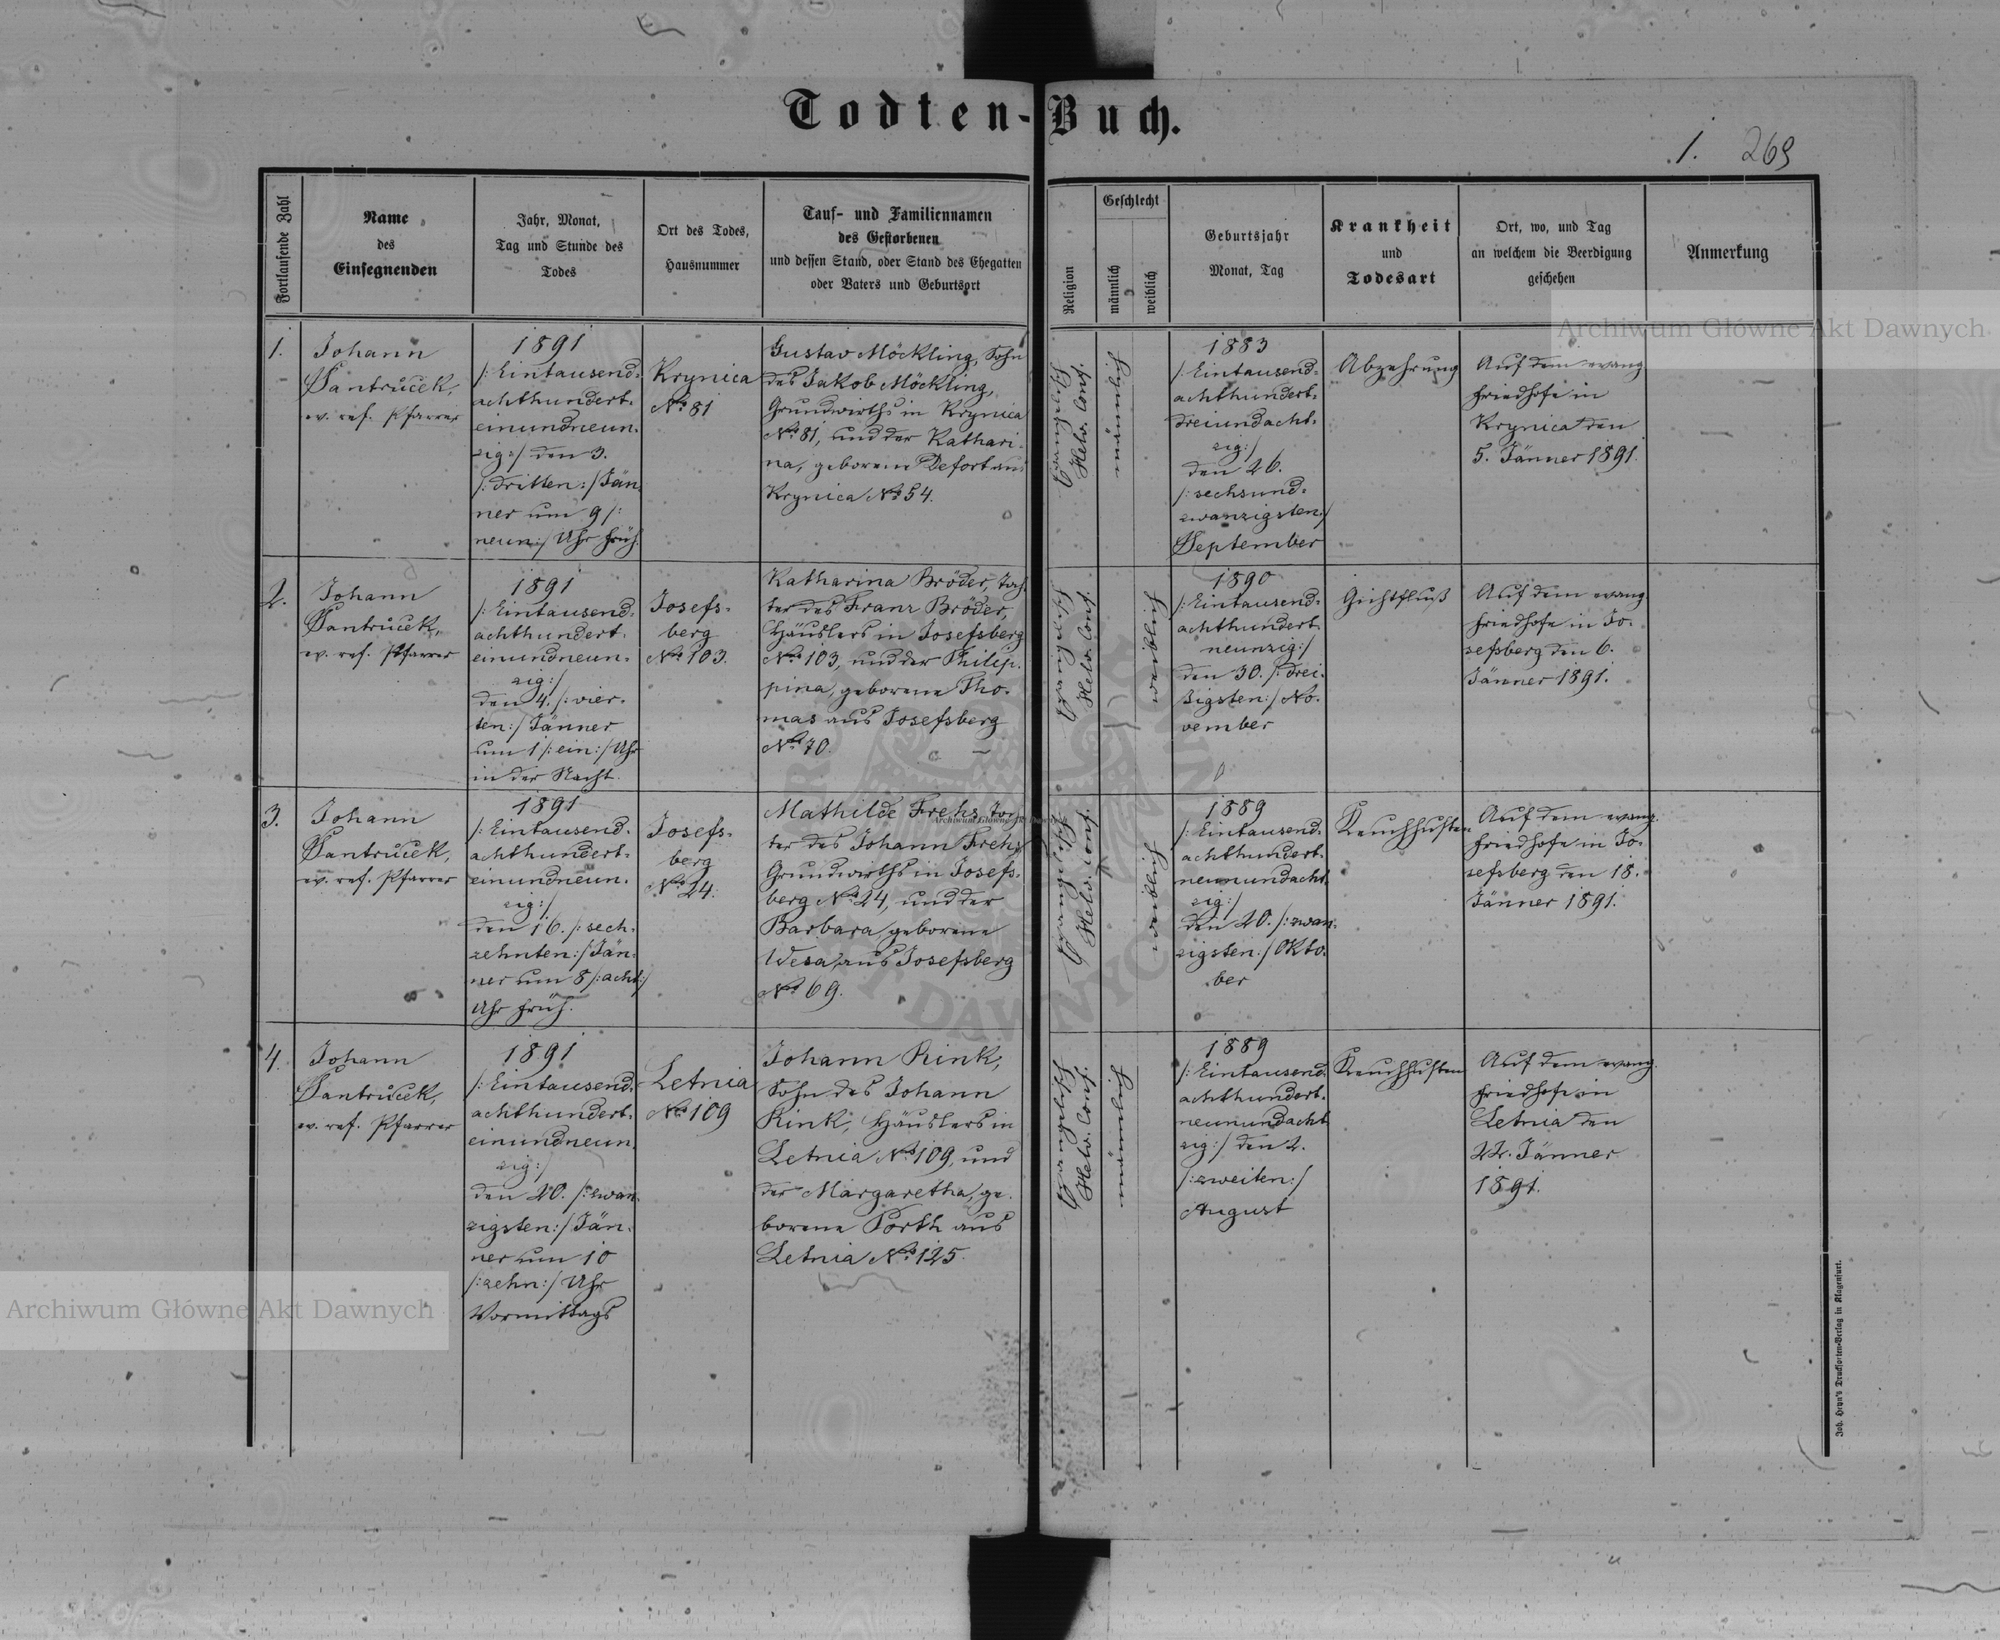 Todten-Buch.
1. 269
Fortlaufende Zahl
Name
des
Einsegnenden
Jahr, Monat,
Tag und Stunde des
Todes
Ort des Todes,
Hausnummer
Tauf- und Familiennamen
des Gestorbenen
und dessen Stand, oder Stand des Ehegatten
oder Vaters und Geburtsort
Religion
Geschlecht
männlich
weiblich
Geburtsjahr
Monat, Tag
Krankheit
und
Todesart
Ort, wo, und Tag
an welchem die Beerdigung
geschehen
Anmerkung
1.
Johann
Santrůček,
ev. ref. Pfarrer
1891
/: Eintausend-
achthundert-
einundneun-
zig :/ den 3.
/: dritten :/ Jän-
ner um 9 /:
neun :/ Uhr früh.
Krynica
No 81
Gustav Möckling, Sohn
des Jakob Möckling,
Grundwirths in Krynica
No 81, und der Kathari-
na, geborene Defort aus
Krynica No 54.
Evangelisch
Helv. Conf.
männlich
1883
/: Eintausend-
achthundert-
dreiundacht-
zig :/
den 26.
/: sechsund-
zwanzigsten :/
September
Abzehrung
Auf dem evang.
Friedhofe in
Krynica den
5. Jänner 1891.
2.
Johann
Santrůček,
ev. ref. Pfarrer
1891
/: Eintausend-
achthundert-
einundneun-
zig :/
den 4. /: vier-
ten :/ Jänner
um 1 /: ein :/ Uhr
in der Nacht.
Josefs-
berg
No 103.
Katharina Bröder, Toch-
ter des Franz Bröder,
Häuslers in Josefsberg
No 103, und der Philip-
pina, geborene Tho-
mas aus Josefsberg
No 70.
Evangelisch
Helv. Conf.
weiblich
1890
/: Eintausend-
achthundert-
neunzig :/
den 30. /: drei-
ßigsten :/ No-
vember
Gichtfluß
Auf dem evang.
Friedhofe in Jo-
sefsberg den 6.
Jänner 1891.
3.
Johann
Santrůček,
ev. ref. Pfarrer
1891
/: Eintausend-
achthundert-
einundneun-
zig :/
den 16. /: sech-
zehnten :/ Jän-
ner um 8 /: acht :/
Uhr früh.
Josefs-
berg
No 24.
Mathilde Frehs, Toch-
ter des Johann Frehs,
Grundwirths in Josefs-
berg No 24, und der
Barbara, geborene
aus Josefsberg
No 69.
Evangelisch
Helv. Conf.
weiblich
1889
/: Eintausend-
achthundert-
neunundacht-
zig :/
den 20. /: zwan-
zigsten :/ Okto-
ber
Keuchhusten
Auf dem evang.
Friedhofe in Jo-
sefsberg den 18.
Jänner 1891.
4.
Johann
Santrůček,
ev. ref. Pfarrer
1891
/: Eintausend-
achthundert-
einundneun-
zig :/
den 20. /: zwan-
zigsten :/ Jän-
ner um 10
/: zehn :/ Uhr
Vormittags
Letnia
No 109
Johann Rink,
Sohn des Johann
Rink, Häuslers in
Letnia No 109, und
der Margaretha, ge-
borene Porth aus
Letnia No 125.
Evangelisch
Helv. Conf.
männlich
1889
/: Eintausend-
achthundert-
neunundacht-
zig :/ den 2.
/: zweiten :/
August
Keuchhusten
Auf dem evang.
Friedhofe in
Letnia den
22. Jänner
1891.
Joh. Heyn's Drucksorten-Verlag in Klagenfurt.
Archiwum Główne Akt Dawnych
Archiwum Główne Akt Dawnych
Archiwum Główne Akt Dawnych